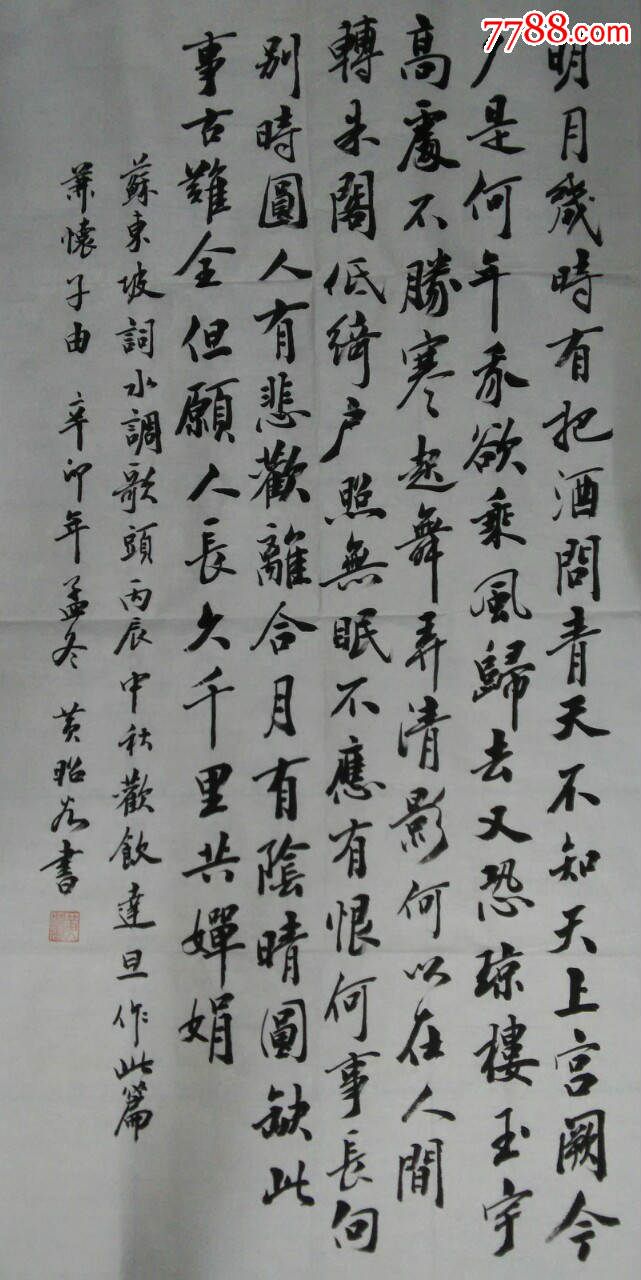 7788.com
明月幾時有把酒問青天不知天上宫闕今
夕是何年我欲乘風歸去又恐琼樓玉宇
高處不勝寒起舞弄清影何以在人間
轉朱閣低綺户照無眠不應有恨何事長向
别時圓人有悲歡離合月有陰晴圓缺此
事古難全但願人長久千里共嬋娟
蘇東坡詞水調歌頭丙辰中秋歡飲達旦作此篇
兼懷子由 辛卯年孟冬 黄昭書